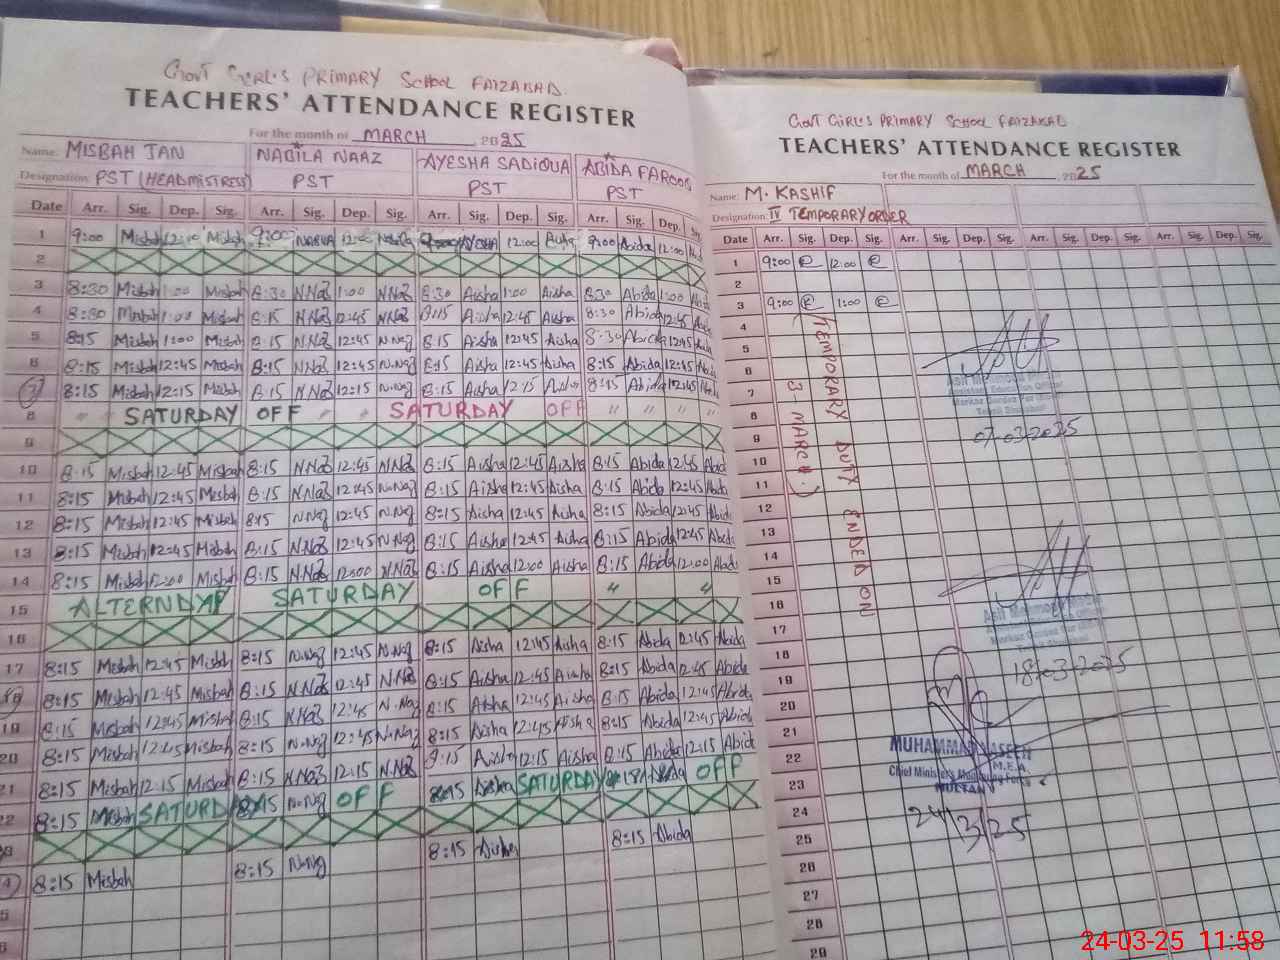 GOVT GIRL'S PRIMARY SCHOOL FAIZABAD.
TEACHERS' ATTENDANCE REGISTER
For the month of MARCH, 2025
Name: MISBAH JAN NABILA NAAZ AYESHA SADIQUA ABIDA FAROOQ
Designation: PST (HEADMISTRESS) PST PST PST
Date Arr. Sig. Dep. Sig. Arr. Sig. Dep. Sig. Arr. Sig. Dep. Sig. Arr. Sig. Dep. Sig.
1 9:00 Misbah 12:00 Misbah 9:00 NABILA 12:00 Nabila 9:00 AYESHA 12:00 9:00 Abida 12:00
2
3 8:30 Misbah 1:00 Misbah 8:30 N.Naz 1:00 N.Naz 8:30 Aisha 1:00 Aisha 8:30 Abida 1:00 Abida
4 8:30 Misbah 1:00 Misbah 8:15 N.Naz 12:45 N.Naz 8:15 Aisha 12:45 Aisha 8:30 Abida 12:45 Abida
5 8:15 Misbah 1:00 Misbah 8:15 N.Naz 12:45 N.Naz 8:15 Aisha 12:45 Aisha 8:30 Abida 12:45 Abida
6 8:15 Misbah 12:45 Misbah 8:15 N.Naz 12:45 N.Naz 8:15 Aisha 12:45 Aisha 8:15 Abida 12:45 Abida
7 8:15 Misbah 12:15 Misbah 8:15 N.Naz 12:15 N.Naz 8:15 Aisha 12:15 Aisha 8:15 Abida 12:45
8 " " SATURDAY OFF " " SATURDAY OFF " " " "
9
10 8:15 Misbah 12:45 Misbah 8:15 N.Naz 12:45 N.Naz 8:15 Aisha 12:45 Aisha 8:15 Abida 12:45 Abida
11 8:15 Misbah 12:45 Misbah 8:15 N.Naz 12:45 N.Naz 8:15 Aisha 12:45 Aisha 8:15 Abida 12:45 Abida
12 8:15 Misbah 12:45 Misbah 8:15 N.Naz 12:45 N.Naz 8:15 Aisha 12:45 Aisha 8:15 Abida 12:45 Abida
13 8:15 Misbah 12:45 Misbah 8:15 N.Naz 12:45 N.Naz 8:15 Aisha 12:45 Aisha 8:15 Abida 12:45 Abida
14 8:15 Misbah 12:00 Misbah 8:15 N.Naz 12:00 N.Naz 8:15 Aisha 12:00 Aisha 8:15 Abida 12:00 Abida
15 SATURDAY OFF " "
16
17 8:15 Misbah 12:45 Misbah 8:15 N.Naz 12:45 N.Naz 8:15 Aisha 12:45 Aisha 8:15 Abida 12:45 Abida
18 8:15 Misbah 12:45 Misbah 8:15 N.Naz 12:45 N.Naz 8:15 Aisha 12:45 Aisha 8:15 Abida 12:45 Abida
19 8:15 Misbah 12:45 Misbah 8:15 N.Naz 12:45 N.Naz 8:15 Aisha 12:45 Aisha 8:15 Abida 12:45 Abida
20 8:15 Misbah 12:45 Misbah 8:15 N.Naz 12:45 N.Naz 8:15 Aisha 12:45 Aisha 8:15 Abida 12:45 Abida
21 8:15 Misbah 12:15 Misbah 8:15 N.Naz 12:15 N.Naz 8:15 Aisha 12:15 Aisha 8:15 Abida 12:15 Abida
22 8:15 Misbah SATURDAY 8:15 N.Naz OFF 8:15 Aisha SATURDAY OFF
8:15 Misbah 8:15 N.Naz 8:15 Aisha 8:15 Abida
GOVT GIRL'S PRIMARY SCHOOL FAIZABAD
TEACHERS' ATTENDANCE REGISTER
For the month of MARCH, 2025
Name: M. KASHIF
Designation: IV TEMPORARY ORDER
Date Arr. Sig. Dep. Sig. Arr. Sig. Dep. Sig. Arr. Sig. Dep. Sig. Arr. Sig. Dep. Sig.
1 9:00 12:00
2
3 9:00 1:00
4
5
6
7
8
9
10
11
12
13
14
15
16
17
18
19
20
21
22
23
24
25
26
27
28
29
(TEMPORARY DUTY ENDED ON
3-MARCH.)
07-03-2025
18-03-2025
MUHAMMAD
M.E.A
Chief Minister's Monitoring Force
MULTAN
24/3/25
24-03-25 11:58